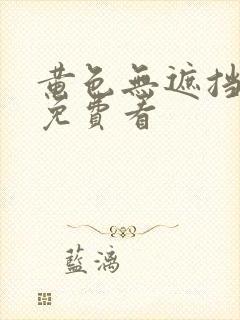 黄色無遮挡
免費看
藍漓